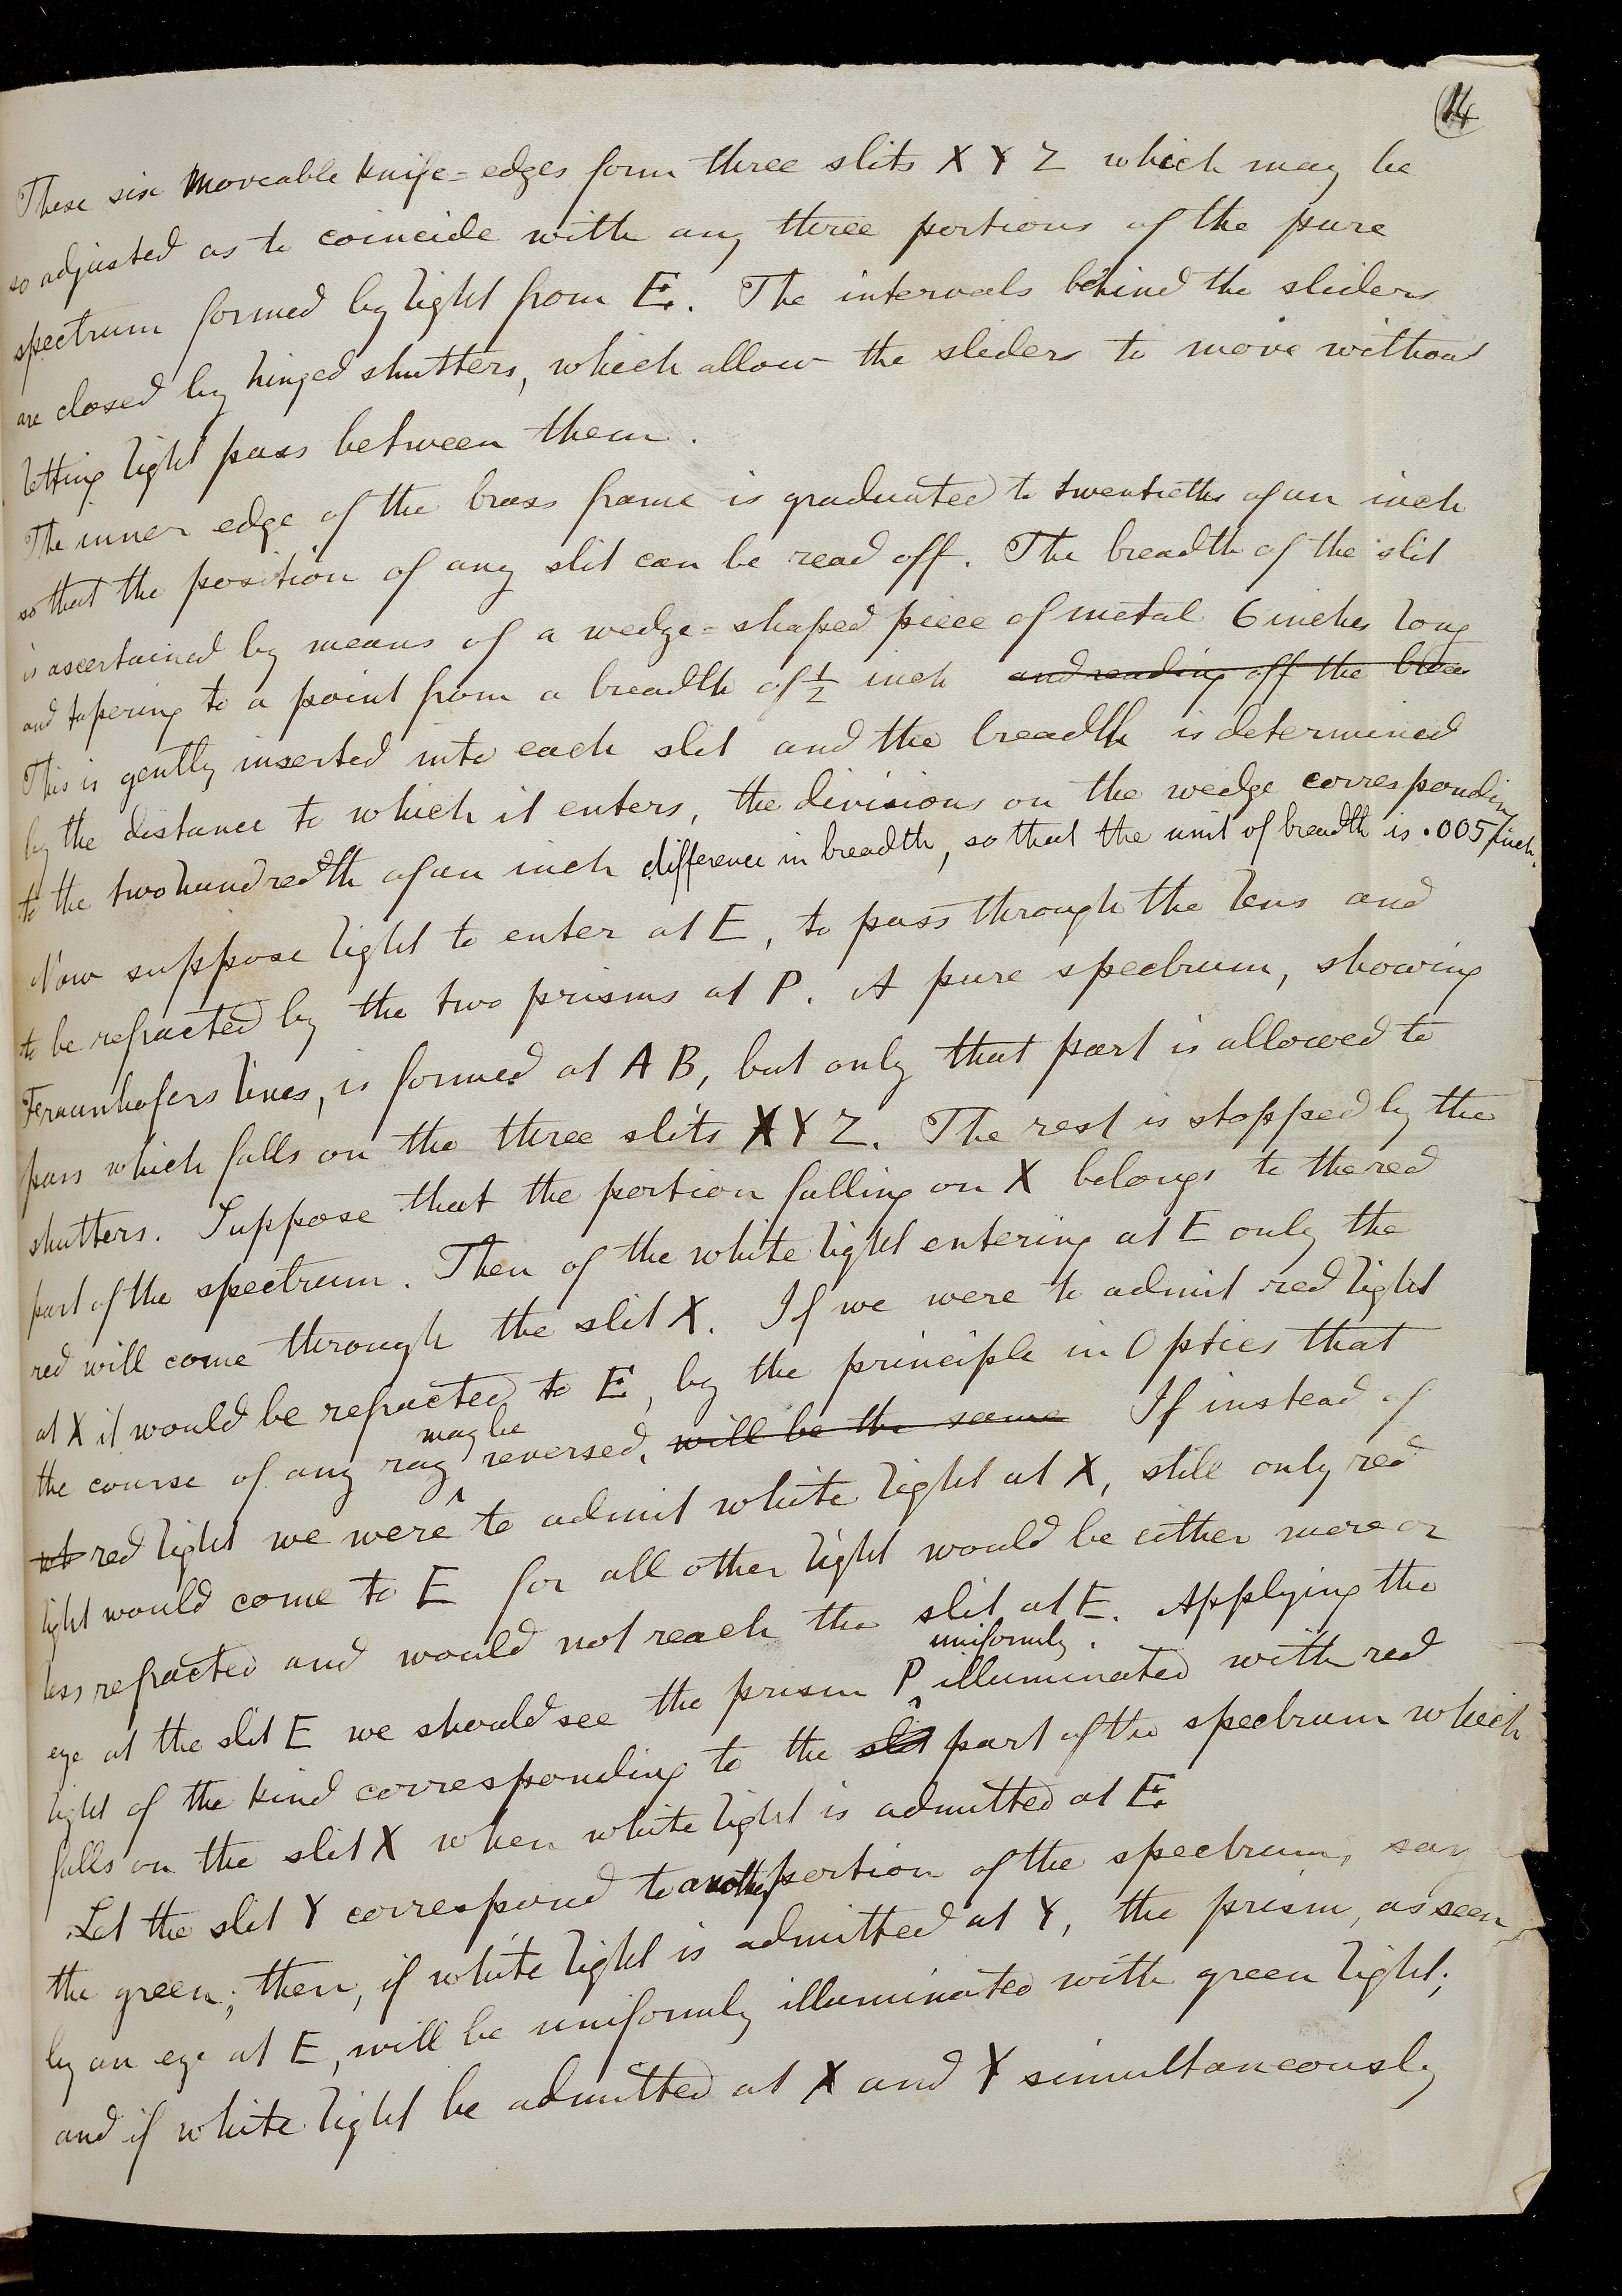 14
These six moveable knife=edges form three slits X Y Z which may be
so adjusted as to coincide with any three portions of the pure
spectrum formed by light from E. The intervals behind the sliders
are closed by hinged shutters, which allow the sliders to move without
letting light pass between them.
The inner edge of the brass frame is graduated to twentieths of an inch
so that the position of any slit can be read off. The breadth of the slit
is ascertained by means of a wedge=shaped piece of metal 6 inches long
and tapering to a point from a breadth of ½ inch and reading off the brea
This is gently inserted into each slit and the breadth is determined
by the distance to which it enters, the divisions on the wedge corresponding
to the two hundredth of an inch difference in breadth, so that the unit of breadth is .005 inch.
Now suppose light to enter at E, to pass through the lens and
to be refracted by the two prisms at P. A pure spectrum, showing
Fraunhofers lines, is formed at A B, but only that part is allowed to
pass which falls on the three slits X Y Z. The rest is stopped by the
shutters. Suppose that the portion falling on X belongs to the red
part of the spectrum. Then of the white light entering at E only the
red will come through the slit X. If we were to admit red light
at X it would be refracted to E, by the principle in Optics that
the course of any ray may be reversed. will be the same If instead of
red light we were to admit white light at X, still only red
light would come to E for all other light would be either more or
less refracted and would not reach the slit at E. Applying the
eye at the slit E we should see the prism P uniformly illuminated with red
light of the kind corresponding to the slit part of the spectrum which
falls on the slit X when white light is admitted at E.
Let the slit Y correspond to another portion of the spectrum, say
the green; then, if white light is admitted at Y, the prism, as seen
by an eye at E, will be uniformly illuminated with green light;
and if white light be admitted at X and Y simultaneously